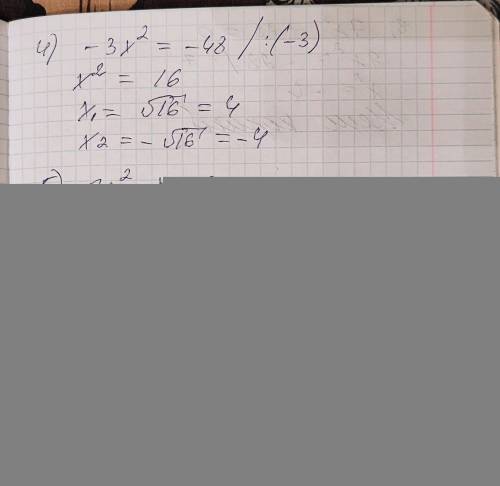 4) -3x² = -48 / :(-3)
x² = 16
x₁ = √16 = 4
x₂ = -√16 = -4